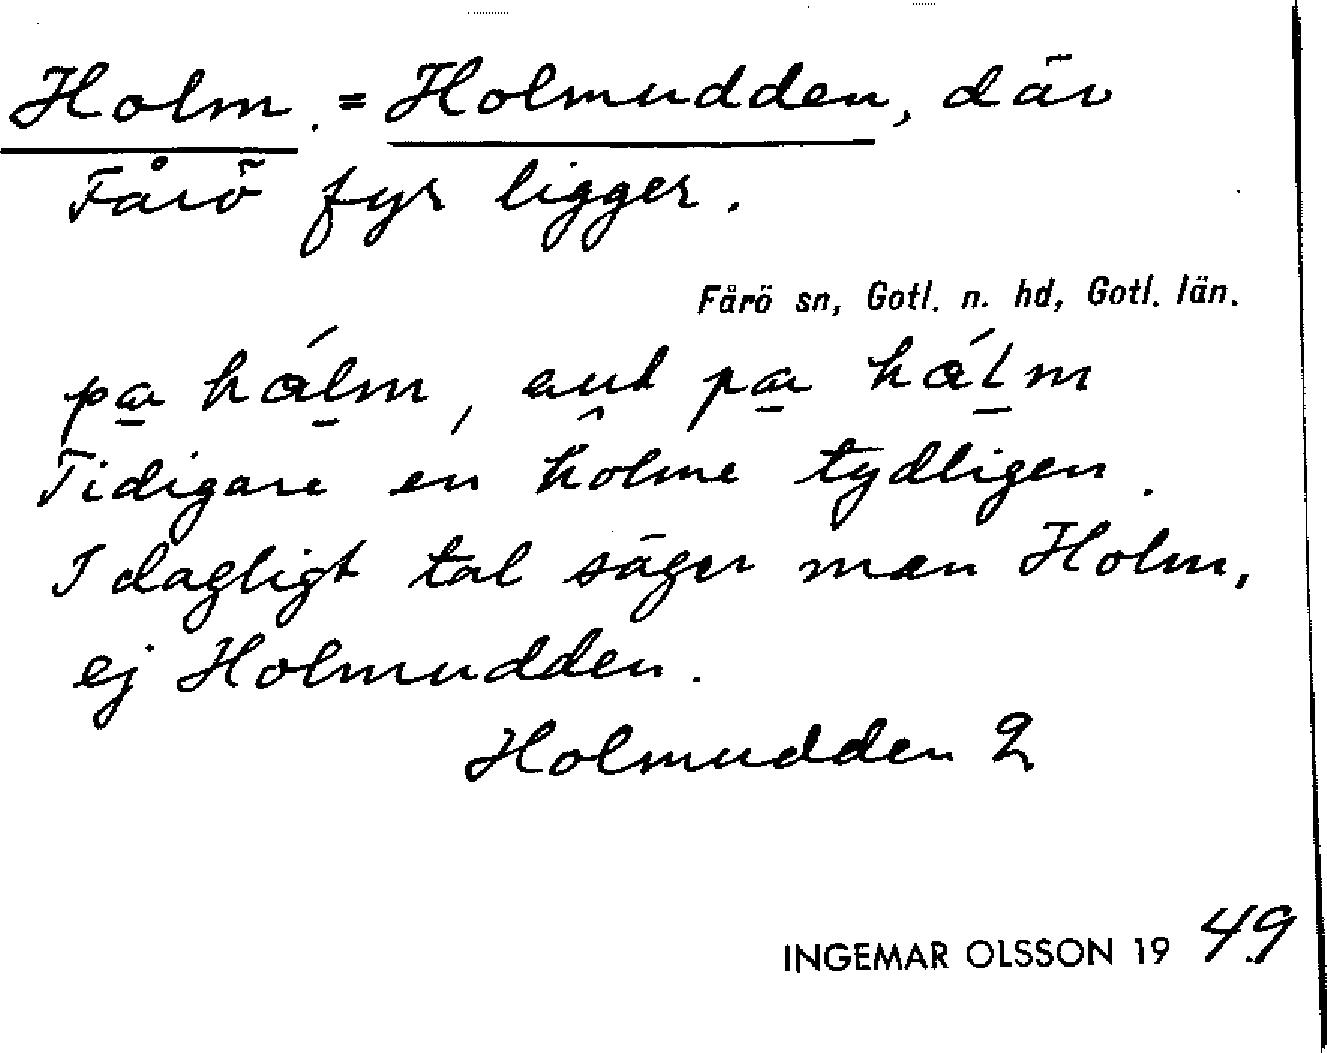 Holm. = Holmudden, där
Fårö fyr ligger.
Fårö sn, Gotl. n. hd, Gotl. län.
pa hålm, pa hålm
Tidigare en holme tydligen.
I dagligt tal säger man Holm,
ej Holmudden.
Holmudden 2
INGEMAR OLSSON 19 49